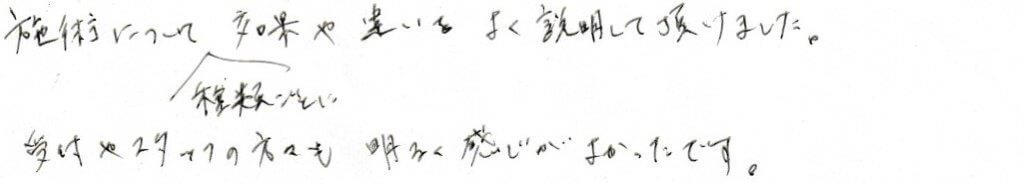 施術について効果や違いをよく説明して頂けました。
種類ごとに
受付やスタッフの方々も明るく感じがよかったです。